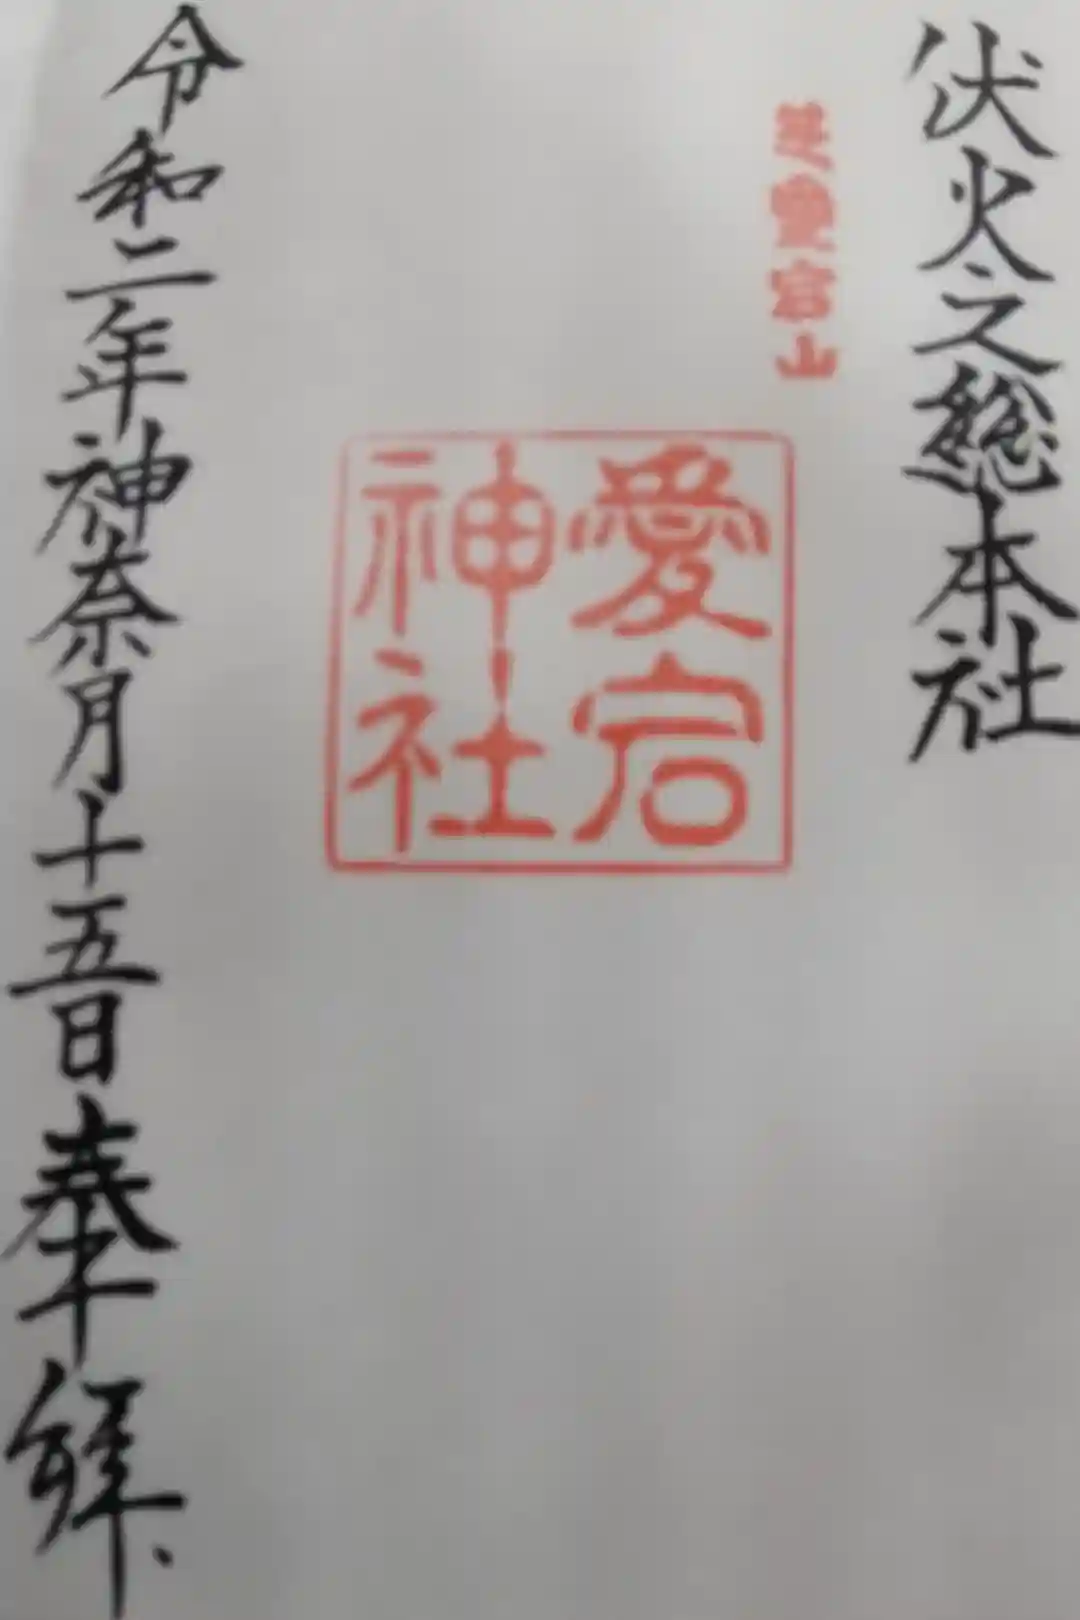 伏火之総本社
芝愛宕山
愛宕
神社
令和二年神奈月十五日奉拝